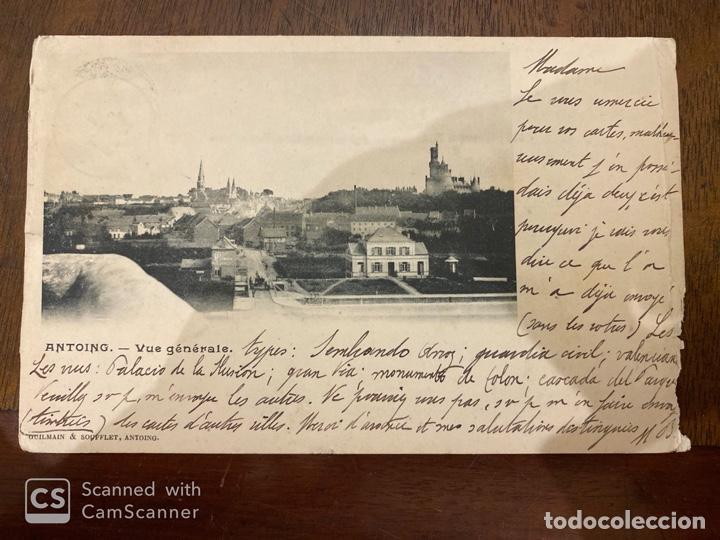 Madame
Je vous remercie
pour vos cartes, malheu-
reusement j'en possé-
dais déjà deux, c'est
pourquoi je vais vous
dire ce que l'on
m'a déjà envoyé
(sans les votres) Les
ANTOING. — Vue générale. types: Sembrando Arroz; guardia civil; valenciana
Les vues: Palacio de la Ilusion; gran via: monumento de Colon: cascada del Parque
Veuillez s v p, m'envoyer les autres. Ne pourriez vous pas, s v p m'en faire
(timbrées) des cartes d'autres villes. Merci d'avance et mes salutations distinguées
GUILMAIN & SOUFFLET, ANTOING.
CS Scanned with
CamScanner
todocoleccion